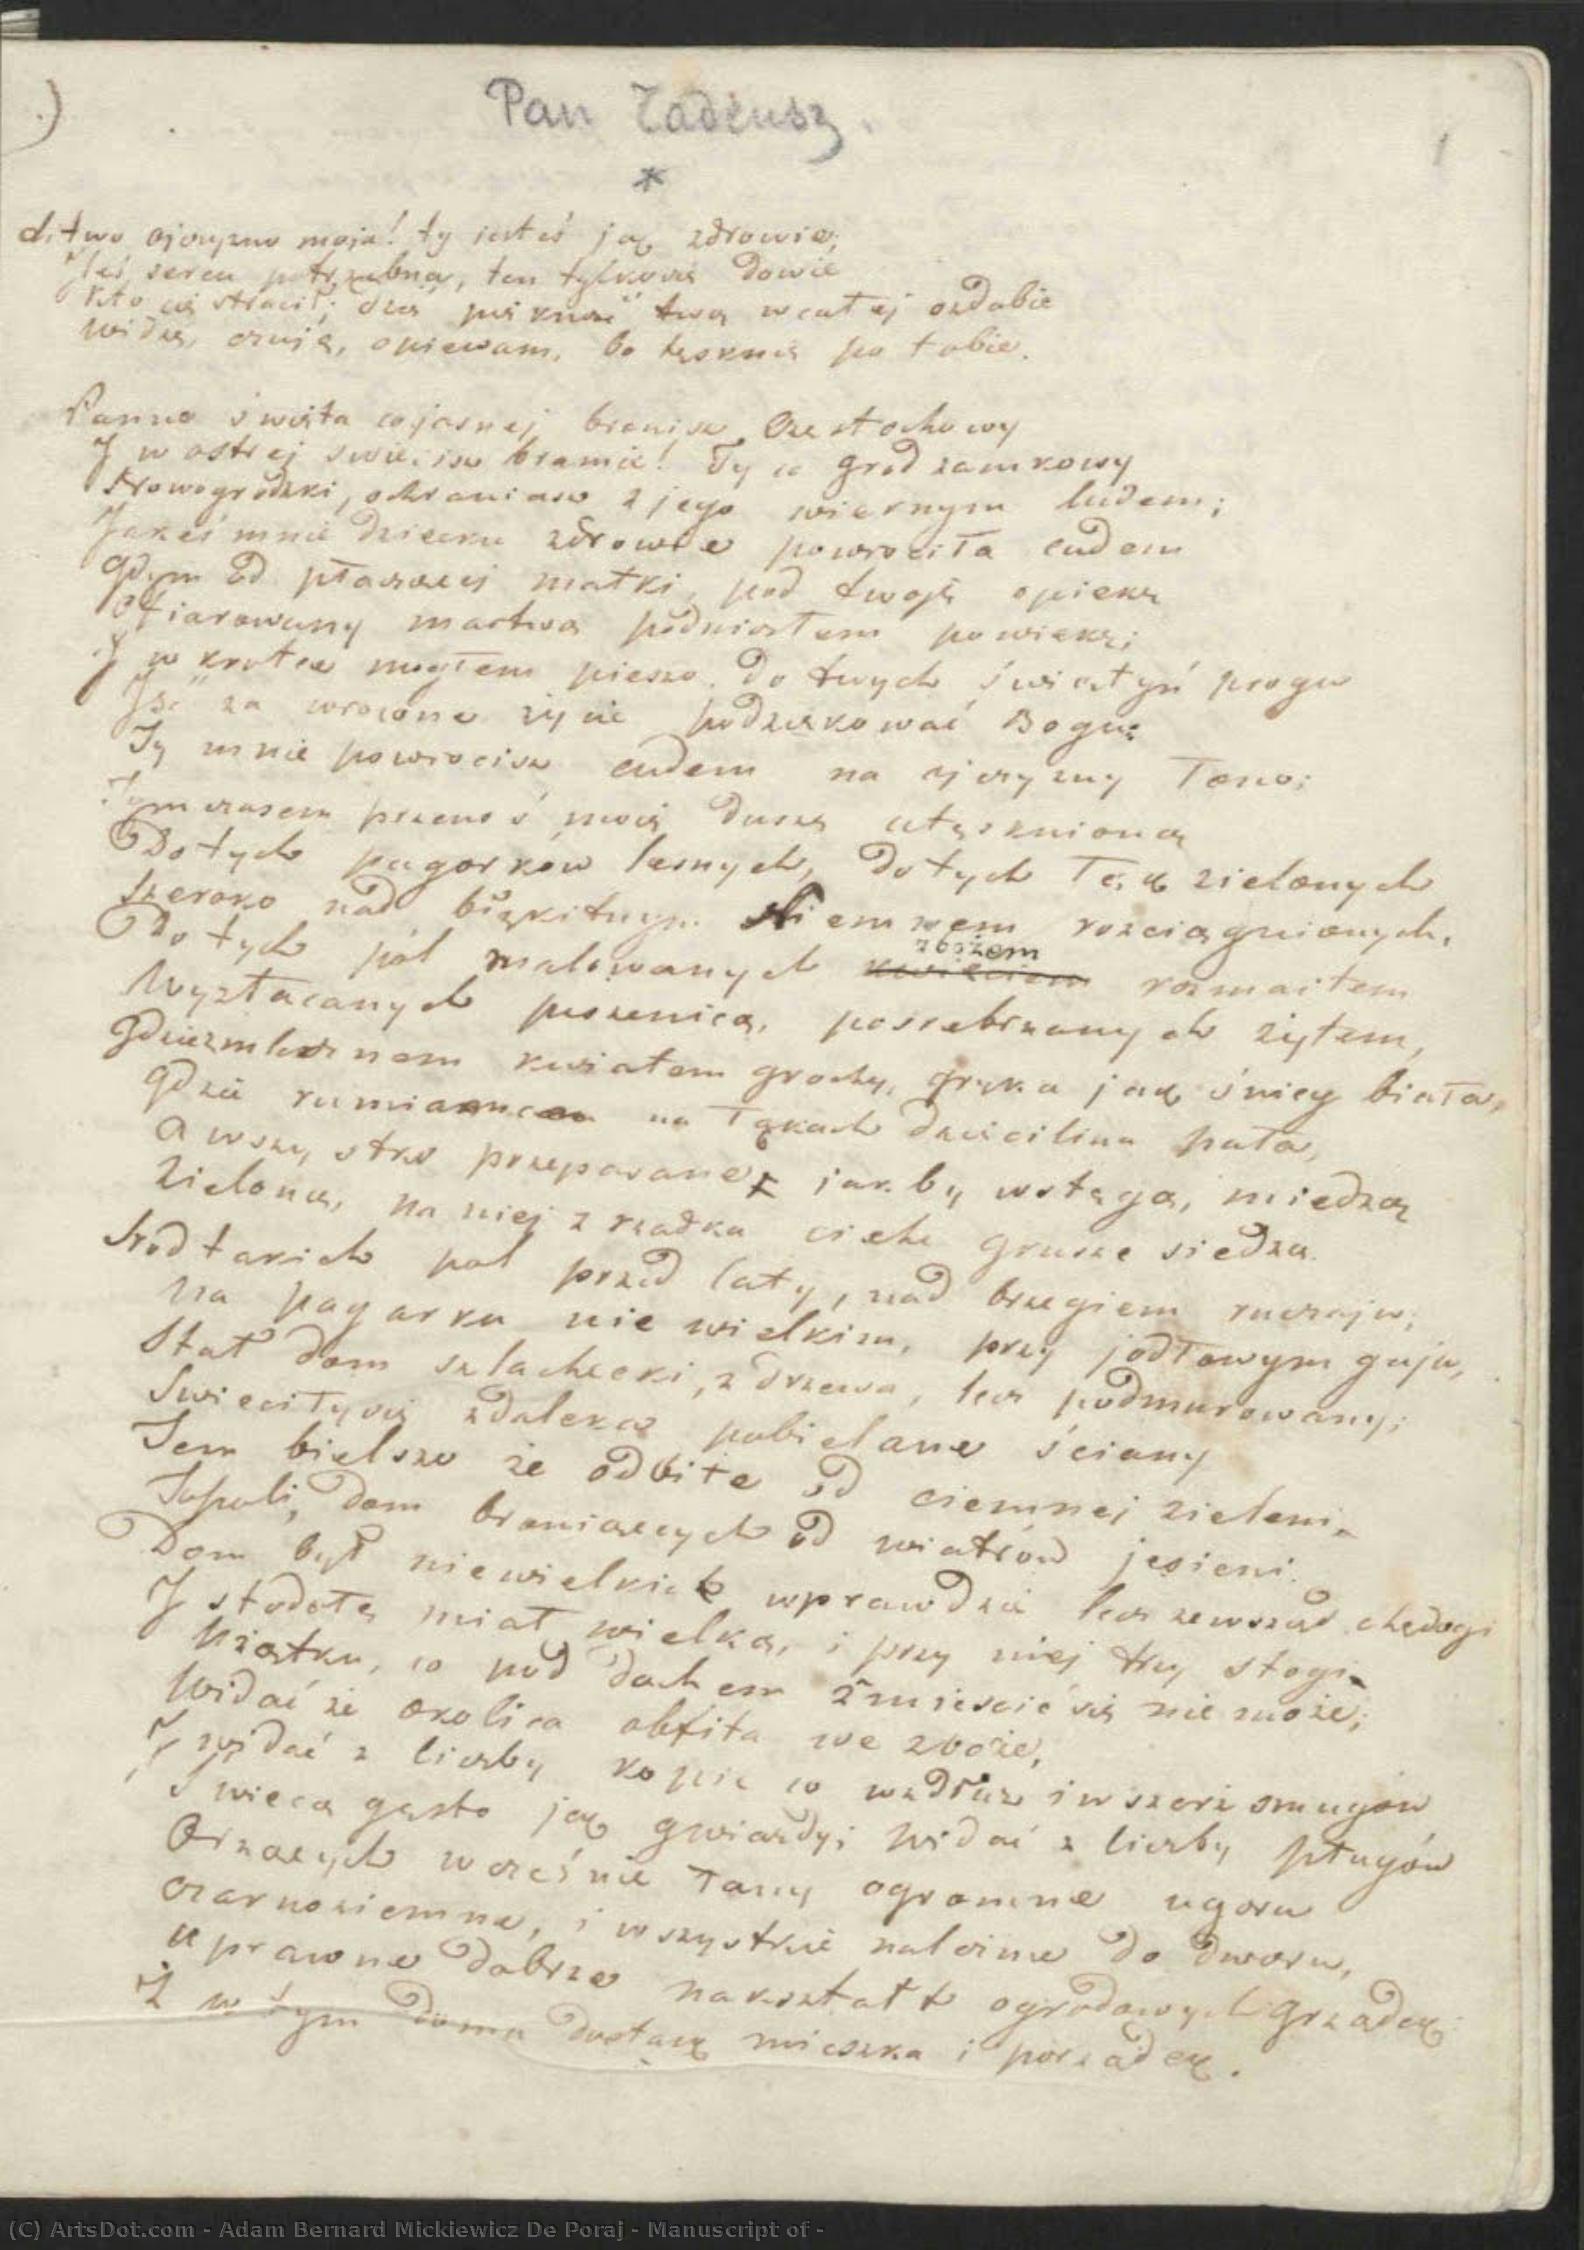 Pan Tadeusz.
1
*
Litwo ojczyzno moja! ty jesteś jak zdrowie;
Ileś sercu potrzebna, ten tylko się dowie
Kto cię stracił; dziś piękność twą w całej ozdobie
widzę, czuję, opiewam, bo tęsknię po tobie.
Panno święta co jasnej bronisz Częstochowy
I w ostrej świecisz bramie! Ty co gród zamkowy
Nowogrodzki, ochraniasz z jego wiernym ludem;
Jakeś mnie dziecku zdrowie powrociła cudem
Gdym od płaczącej matki, pod twoję opiekę
Ofiarowany martwą podniosłem powiekę;
I w krotce mogłem pieszo do twych świątyń progu
Iść za wrocone życie podziękować Bogu:
Ty mnie powrocisz cudem na ojczyzny łono;
Tymczasem przenoś moję duszę utęsknioną
Do tych pagorków lesnych, do tych łąk zielonych
szeroko nad błękitnym Niemnem rozciągnionych,
Do tych pól malowanych kwieciem rozmaitem
zbożem
Wyzłacanych pszenicą, posrebrzanych żytem,
Gdzie kwiatem grochy, gryka jak śnieg biała,
gdzie na łąkach dzięcilina pała,
a wszystko przepasane jakby wstęgą, miedzą
zieloną, na niej z rzadka ciche grusze siedzą.
Sród takich pol przed laty, nad brzegiem ruczaju;
na pagorku nie wielkim, przy jodłowym gaju,
Stał dom szlachecki, z drzewa, lecz podmurowany;
Swieciły się zdaleka pobielane ściany
Tem bielsze że odbite od ciemnej zieleni
Topoli, dom broniących od wiatrów jesieni.
Dom był niewielki wprawdzie lecz zewsząd chędogi
I stodołę miał wielką, i przy niej trzy stogi
Użątku, co pod dachem zmieścić się nie może;
widać że okolica obfita we zboże,
I widać z liczby kopic co wzdłuż i wszerz smugów
Swiecą gęsto jak gwiazdy; widać z liczby pługów
Orzących wcześnie łany ogromne ugoru
czarnoziemne, i wszystkie należne do dworu,
uprawne dobrze nakształt ogrodowych grządek:
Ż w tym domu dostatek mieszka i porządek.
(C) ArtsDot.com - Adam Bernard Mickiewicz De Poraj - Manuscript of -